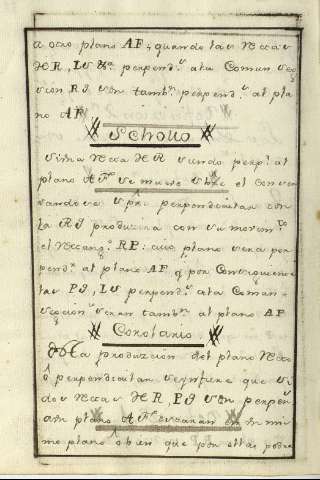 a otro plano AF; quando las Rectas
HR, LS &c. perpend.s a la Comun sec
cion RI sean tamb.n perpend.s al pla
no AF.
Scholio
Si una Recta HR siendo perp.r al
plano AF se mueve sobre el conser
vandose spre perpendicular con
la RI producira con su movim.to
el Rectang.o RP: cuio plano sera per
pend.r al plano AF q por Conseguiente
las PI, LS perpend.s a la Comun
seccion seran tamb.n al plano AF
Corolario
De la produzcion del plano Recto
ò perpendicular se infiere que si
dos Rectas HR, PI son perpen
al plano AF estaran en un mis
mo plano ò bien que por ellas podra